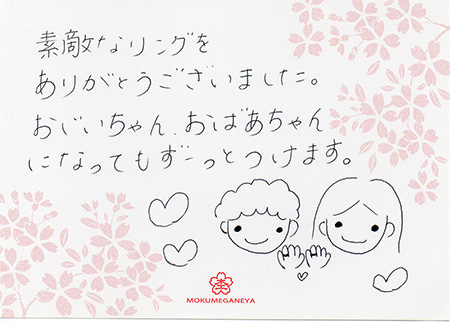 素敵なリングを
ありがとうございました。
おじいちゃん、おばあちゃん
になってもずーっとつけます。
MOKUMEGANEYA